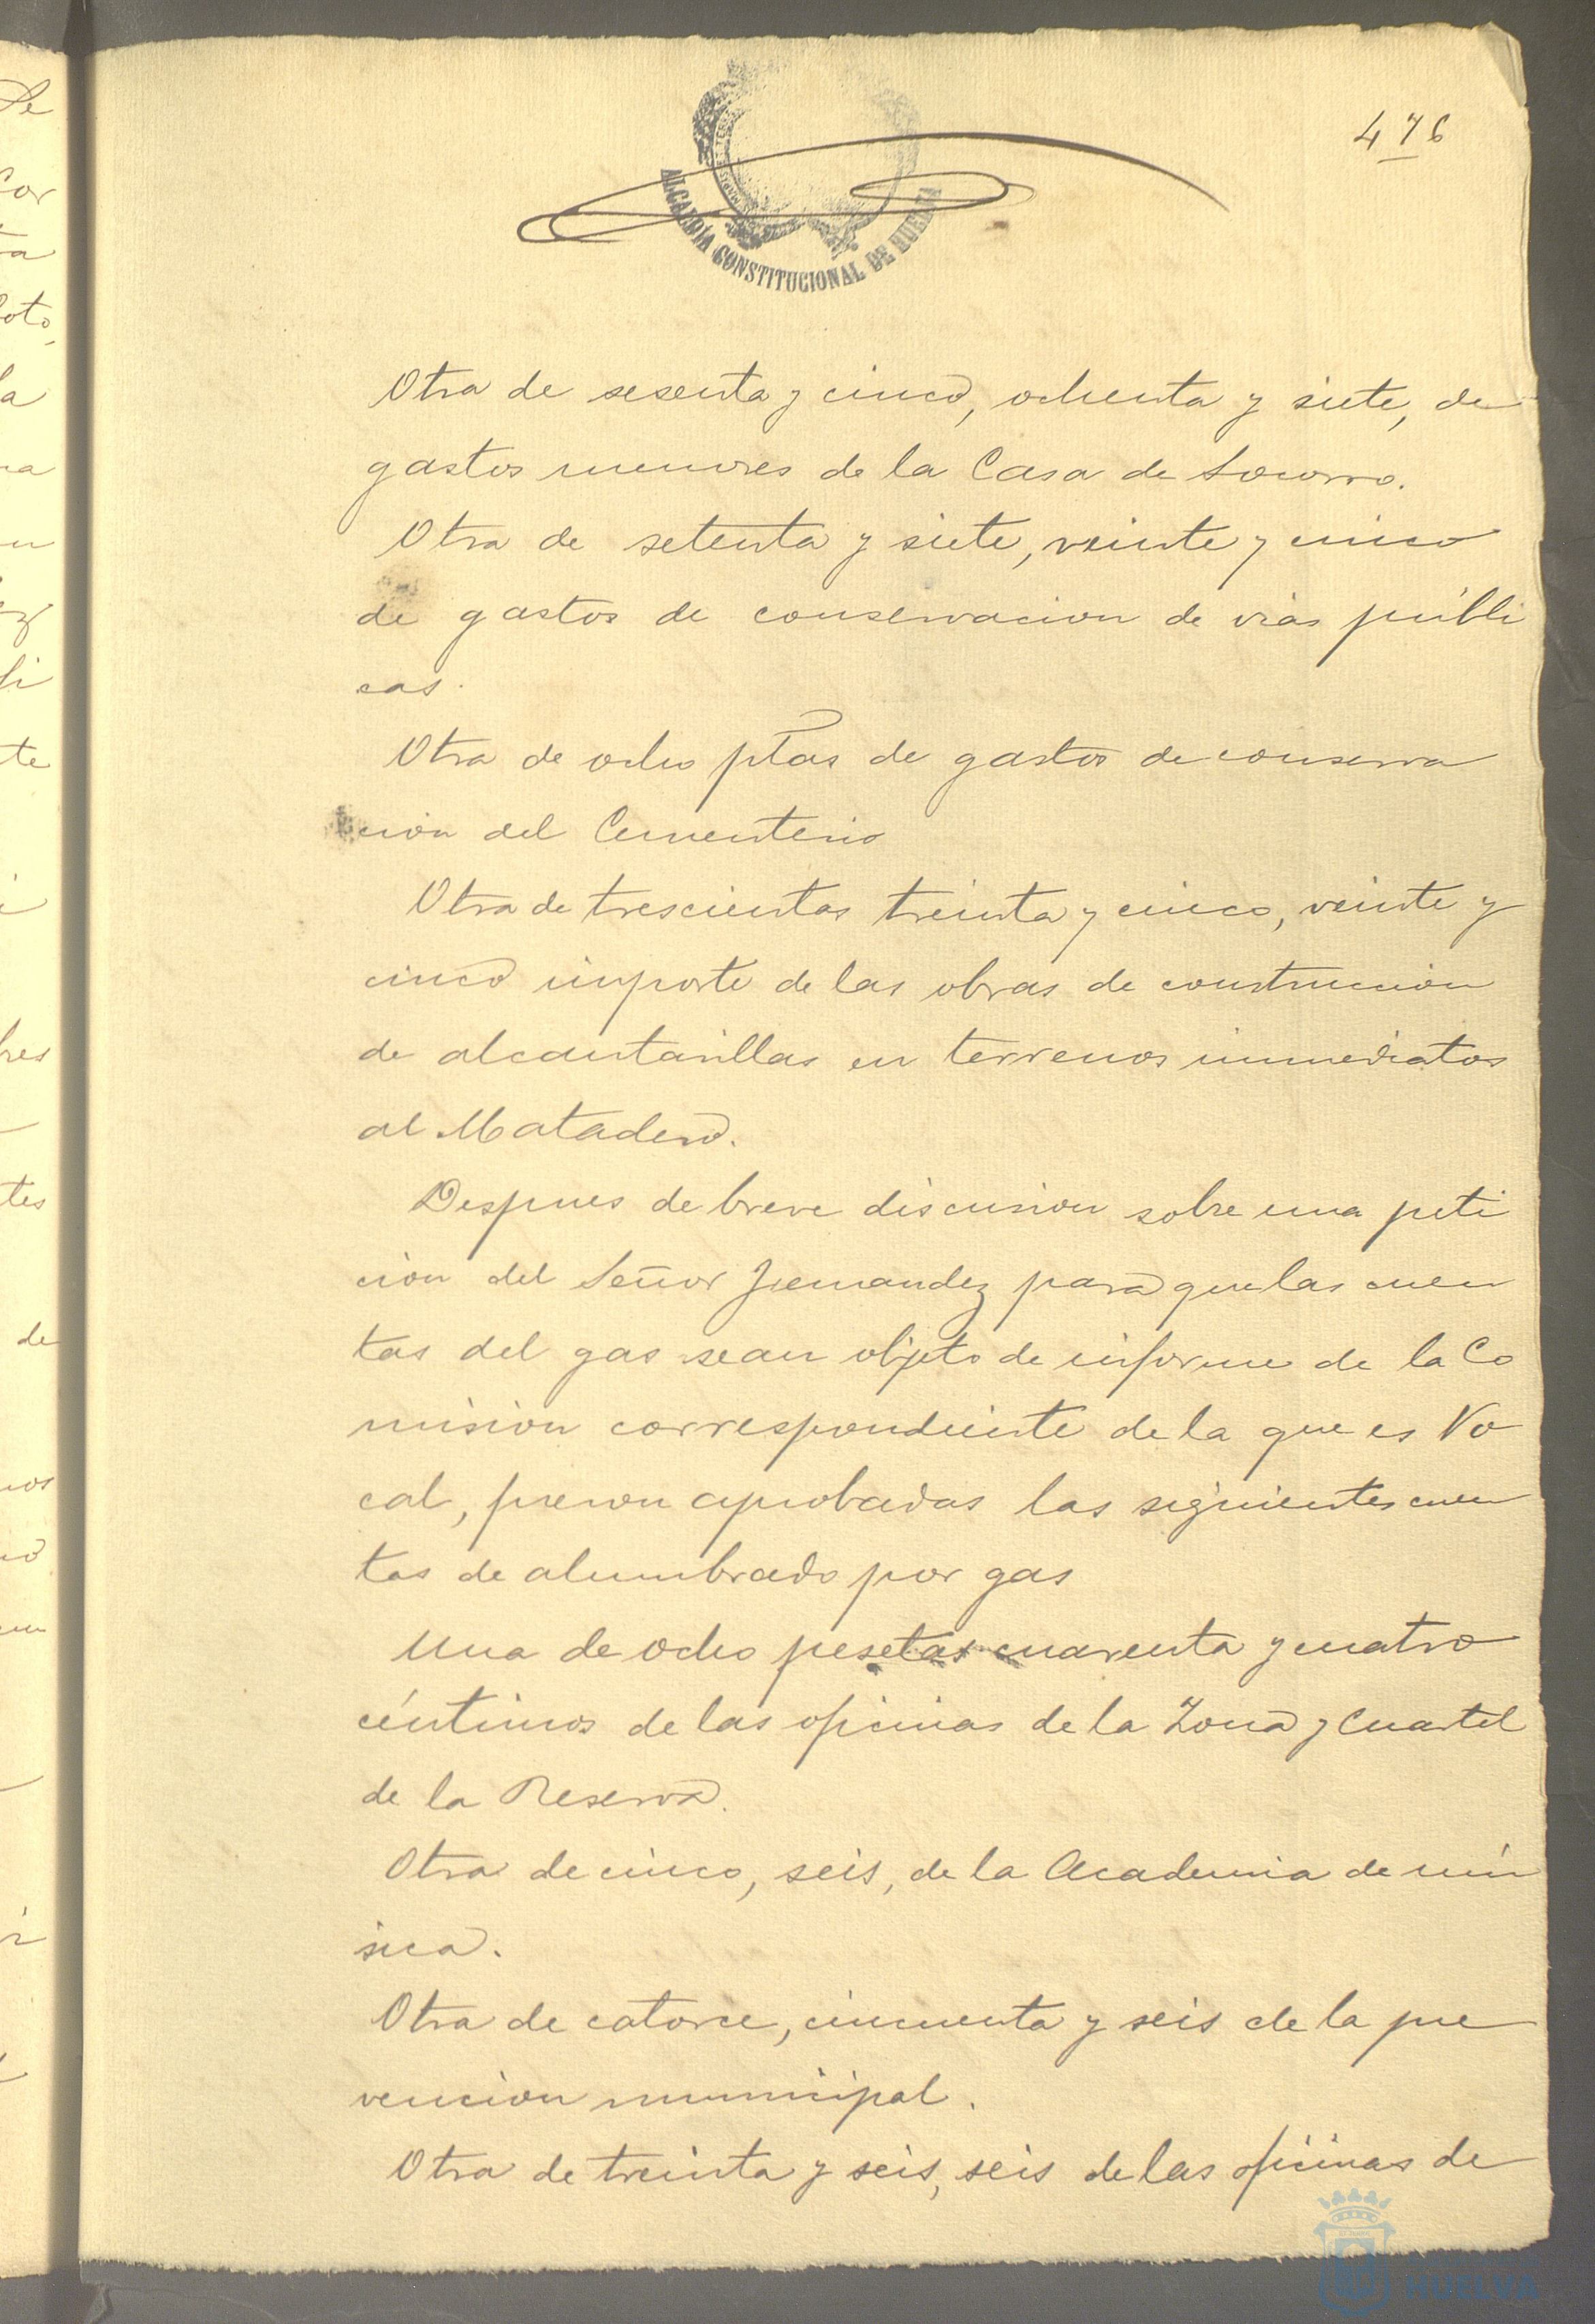 476
ALCALDÍA CONSTITUCIONAL DE HUELVA
Otra de sesenta y cinco, ochenta y siete, de
gastos menores de la Casa de Socorro.
Otra de setenta y siete, veinte y cinco
de gastos de conservacion de vias públi
cas.
Otra de ocho ptas de gastos de conserva
cion del Cementerio
Otra de trescientas treinta y cinco, veinte y
cinco importe de las obras de construccion
de alcantarillas en terrenos inmediatos
al Matadero.
Despues de breve discusion sobre una peti
cion del Señor Fernandez para que las cuen
tas del gas sean objeto de informe de la Co
mision correspondiente de la que es Vo
cal, fueron aprobadas las siguientes cuen
tas de alumbrado por gas
Una de ocho pesetas cuarenta y cuatro
céntimos de las oficinas de la Zona y Cuartel
de la Reserva.
Otra de cinco, seis, de la Academia de mú
sica.
Otra de catorce, cincuenta y seis de la pre
vencion municipal.
Otra de treinta y seis, seis de las oficinas de
HUELVA